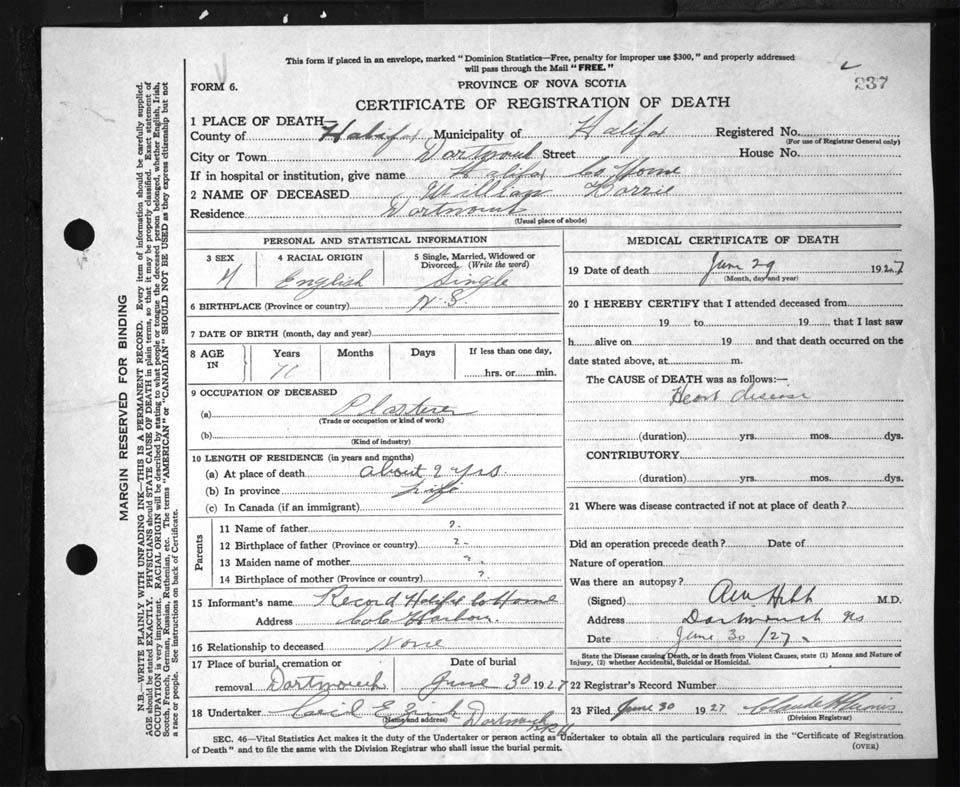 This form if placed in an envelope, marked "Dominion Statistics—Free, penalty for improper use $300," and properly addressed
will pass through the Mail "FREE."
237
FORM 6.
PROVINCE OF NOVA SCOTIA
CERTIFICATE OF REGISTRATION OF DEATH
1 PLACE OF DEATH
County of Halifax Municipality of Halifax Registered No.
(For use of Registrar General only)
City or Town Dartmouth Street House No.
If in hospital or institution, give name Halifax Co Home
2 NAME OF DECEASED William
Residence Dartmouth
(Usual place of abode)
PERSONAL AND STATISTICAL INFORMATION
3 SEX
4 RACIAL ORIGIN English
5 Single, Married, Widowed or
Divorced. (Write the word)
Single
6 BIRTHPLACE (Province or country) N.S
7 DATE OF BIRTH (month, day and year)
8 AGE IN
Years Months Days If less than one day,
hrs. or min.
9 OCCUPATION OF DECEASED
(a) Plasterer
(Trade or occupation or kind of work)
(b)
(Kind of industry)
10 LENGTH OF RESIDENCE (in years and months)
(a) At place of death about 2 yrs.
(b) In province Life
(c) In Canada (if an immigrant)
Parents
11 Name of father ?
12 Birthplace of father (Province or country) ?
13 Maiden name of mother ?
14 Birthplace of mother (Province or country) ?
15 Informant's name Record Halifax Co Home
Address Cole Harbour
16 Relationship to deceased None
17 Place of burial, cremation or Date of burial
removal Dartmouth June 30 1927
18 Undertaker Cecil E. Dartmouth
(Name and address)
MEDICAL CERTIFICATE OF DEATH
19 Date of death June 29 1927
(Month, day and year)
20 I HEREBY CERTIFY that I attended deceased from
19 to 19 that I last saw
h alive on 19 and that death occurred on the
date stated above, at m.
The CAUSE OF DEATH was as follows:—
Heart disease
(duration) yrs. mos. dys.
CONTRIBUTORY
(duration) yrs. mos. dys.
21 Where was disease contracted if not at place of death?
Did an operation precede death? Date of
Nature of operation
Was there an autopsy?
(Signed) M.D.
Address Dartmouth NS
Date June 30 /27
State the Disease causing Death, or in death from Violent Causes, state (1) Means and Nature of
Injury, (2) whether Accidental, Suicidal or Homicidal.
22 Registrar's Record Number
23 Filed June 30 1927
(Division Registrar)
SEC. 46—Vital Statistics Act makes it the duty of the Undertaker or person acting as Undertaker to obtain all the particulars required in the "Certificate of Registration
of Death" and to file the same with the Division Registrar who shall issue the burial permit.
(OVER)
MARGIN RESERVED FOR BINDING
N.B.—WRITE PLAINLY WITH UNFADING INK—THIS IS A PERMANENT RECORD. Every item of information should be carefully supplied.
AGE should be stated EXACTLY. PHYSICIANS should STATE CAUSE OF DEATH in plain terms, so that it may be properly classified. Exact statement of
OCCUPATION is very important. RACIAL ORIGIN will be described by stating to what people or tongue the deceased person belonged, whether English, Irish,
Scotch, French, German, Russian, Ruthenian, etc. The terms "AMERICAN" or "CANADIAN" SHOULD NOT BE USED as they express citizenship but not
a race or people. See instructions on back of Certificate.